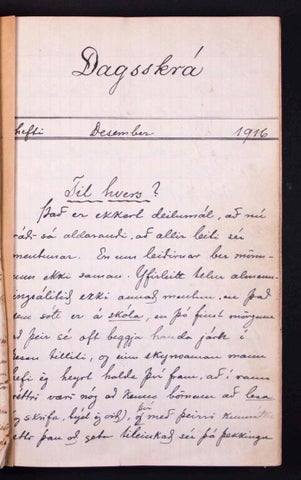 Dagsskrá
hefti Desember 1916
Til hvers?
Það er ekkert deilumál, að nú
sá aldarandi, að allir leiti sér
mentunar. En um leiðirnar ber mönn-
um ekki saman. Yfirleitt telur almenn-
ingsálitið ekki annað mentun, en það
sem sótt er á skóla, en þó finst mörgum
að þeir sé oft beggja handa járn í
þessu tilliti, og einn skynsaman mann
hefi eg heyrt halda því fram, að í raun
réttri væri nóg að kenna börnum að lesa
og skrifa, því með þeirri kunnáttu
ætti þau að geta tileinkað sér þá þekkingu